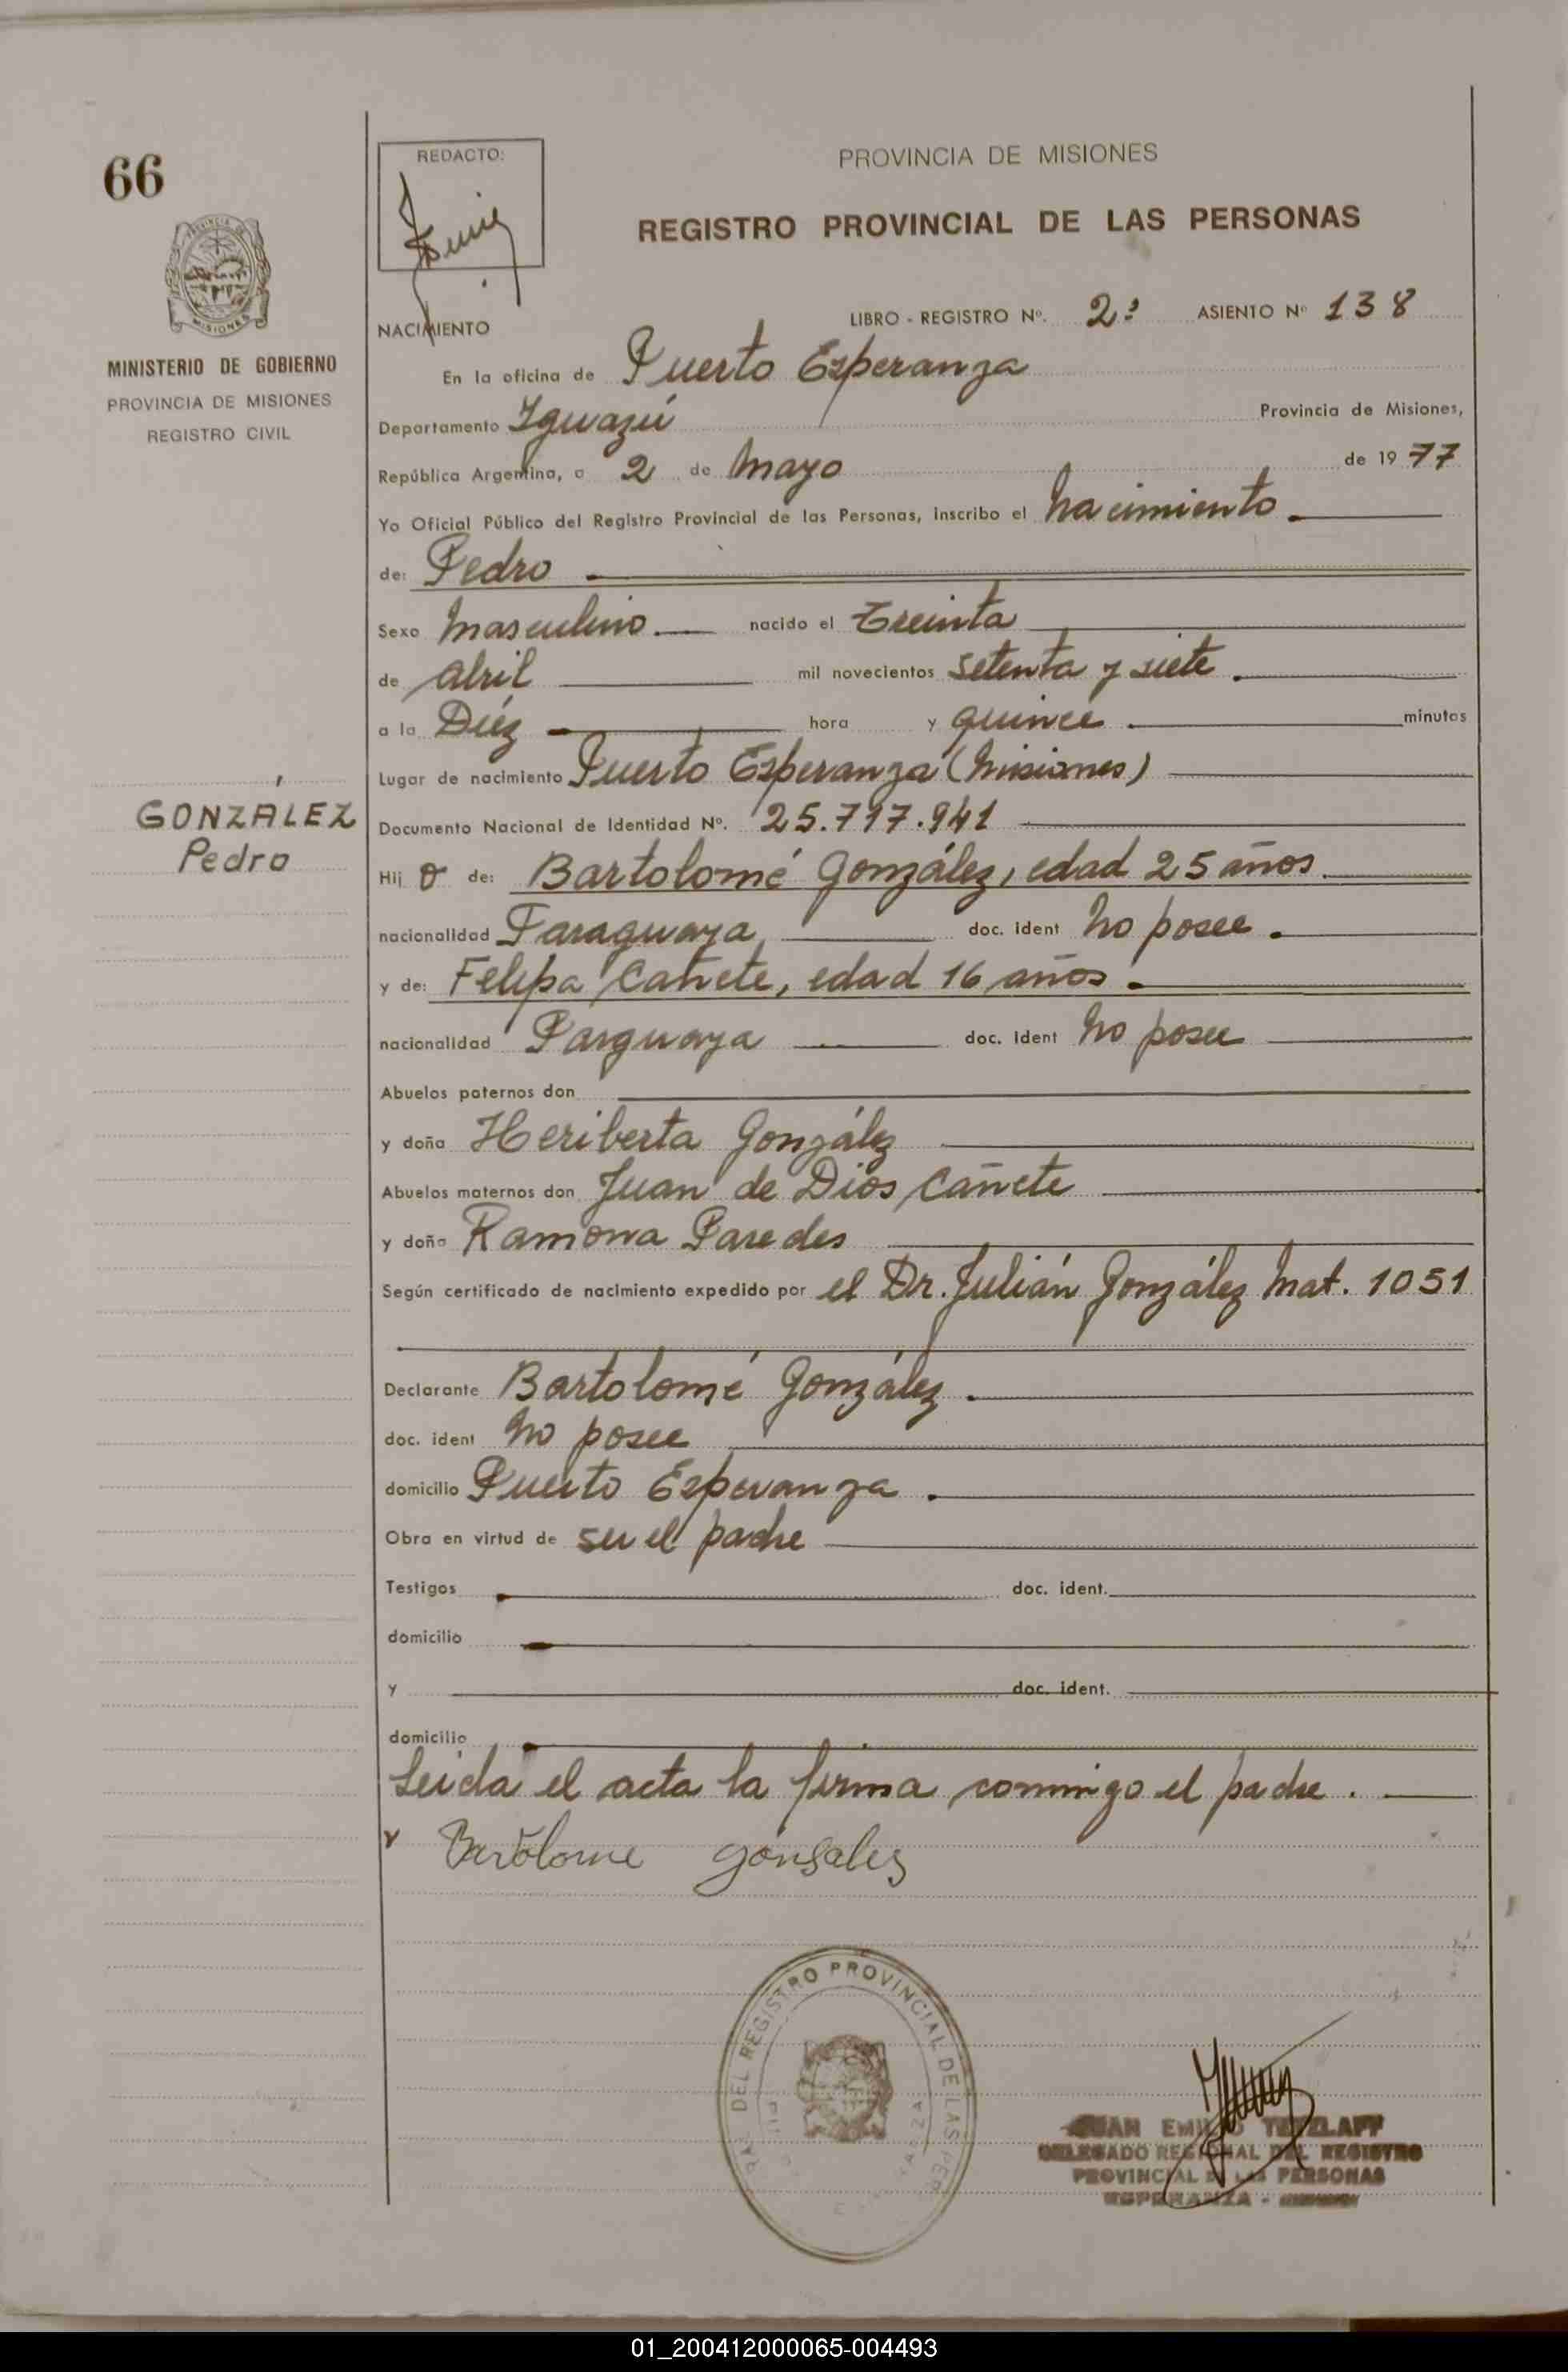 66
REDACTO:
PROVINCIA DE MISIONES
REGISTRO PROVINCIAL DE LAS PERSONAS
MISIONES
MINISTERIO DE GOBIERNO
PROVINCIA DE MISIONES
REGISTRO CIVIL
NACIMIENTO
LIBRO - REGISTRO Nº. 2º ASIENTO Nº 138
En la oficina de Puerto Esperanza
Departamento Iguazú Provincia de Misiones,
República Argentina, a 2 de Mayo de 19 77
Yo Oficial Público del Registro Provincial de las Personas, inscribo el nacimiento
de: Pedro
Sexo Masculino nacido el Treinta
de Abril mil novecientos setenta y siete
a la Diéz hora y quince minutos
Lugar de nacimiento Puerto Esperanza (Misiones)
GONZÁLEZ
Pedro
Documento Nacional de Identidad Nº. 25.717.941
Hij o de: Bartolomé González, edad 25 años
nacionalidad Paraguaya doc. ident No posee.
y de: Felipa Cañete, edad 16 años
nacionalidad Parguaya doc. ident No posee
Abuelos paternos don
y doña Heriberta González
Abuelos maternos don Juan de Dios Cañete
y doña Ramona Paredes
Según certificado de nacimiento expedido por el Dr. Julián González Mat. 1051
Declarante Bartolomé González.
doc. ident No posee
domicilio Puerto Esperanza.
Obra en virtud de ser el padre
Testigos doc. ident.
domicilio
y doc. ident.
domicilio
Leida el acta la firma conmigo el padre.
Bartolome gonsales
DEL REGISTRO PROVINCIAL DE LAS PER
JUAN EMILIO TETZLAFF
DELEGADO REGIONAL DEL REGISTRO
PROVINCIAL DE LAS PERSONAS
ESPERANZA -
01_200412000065-004493